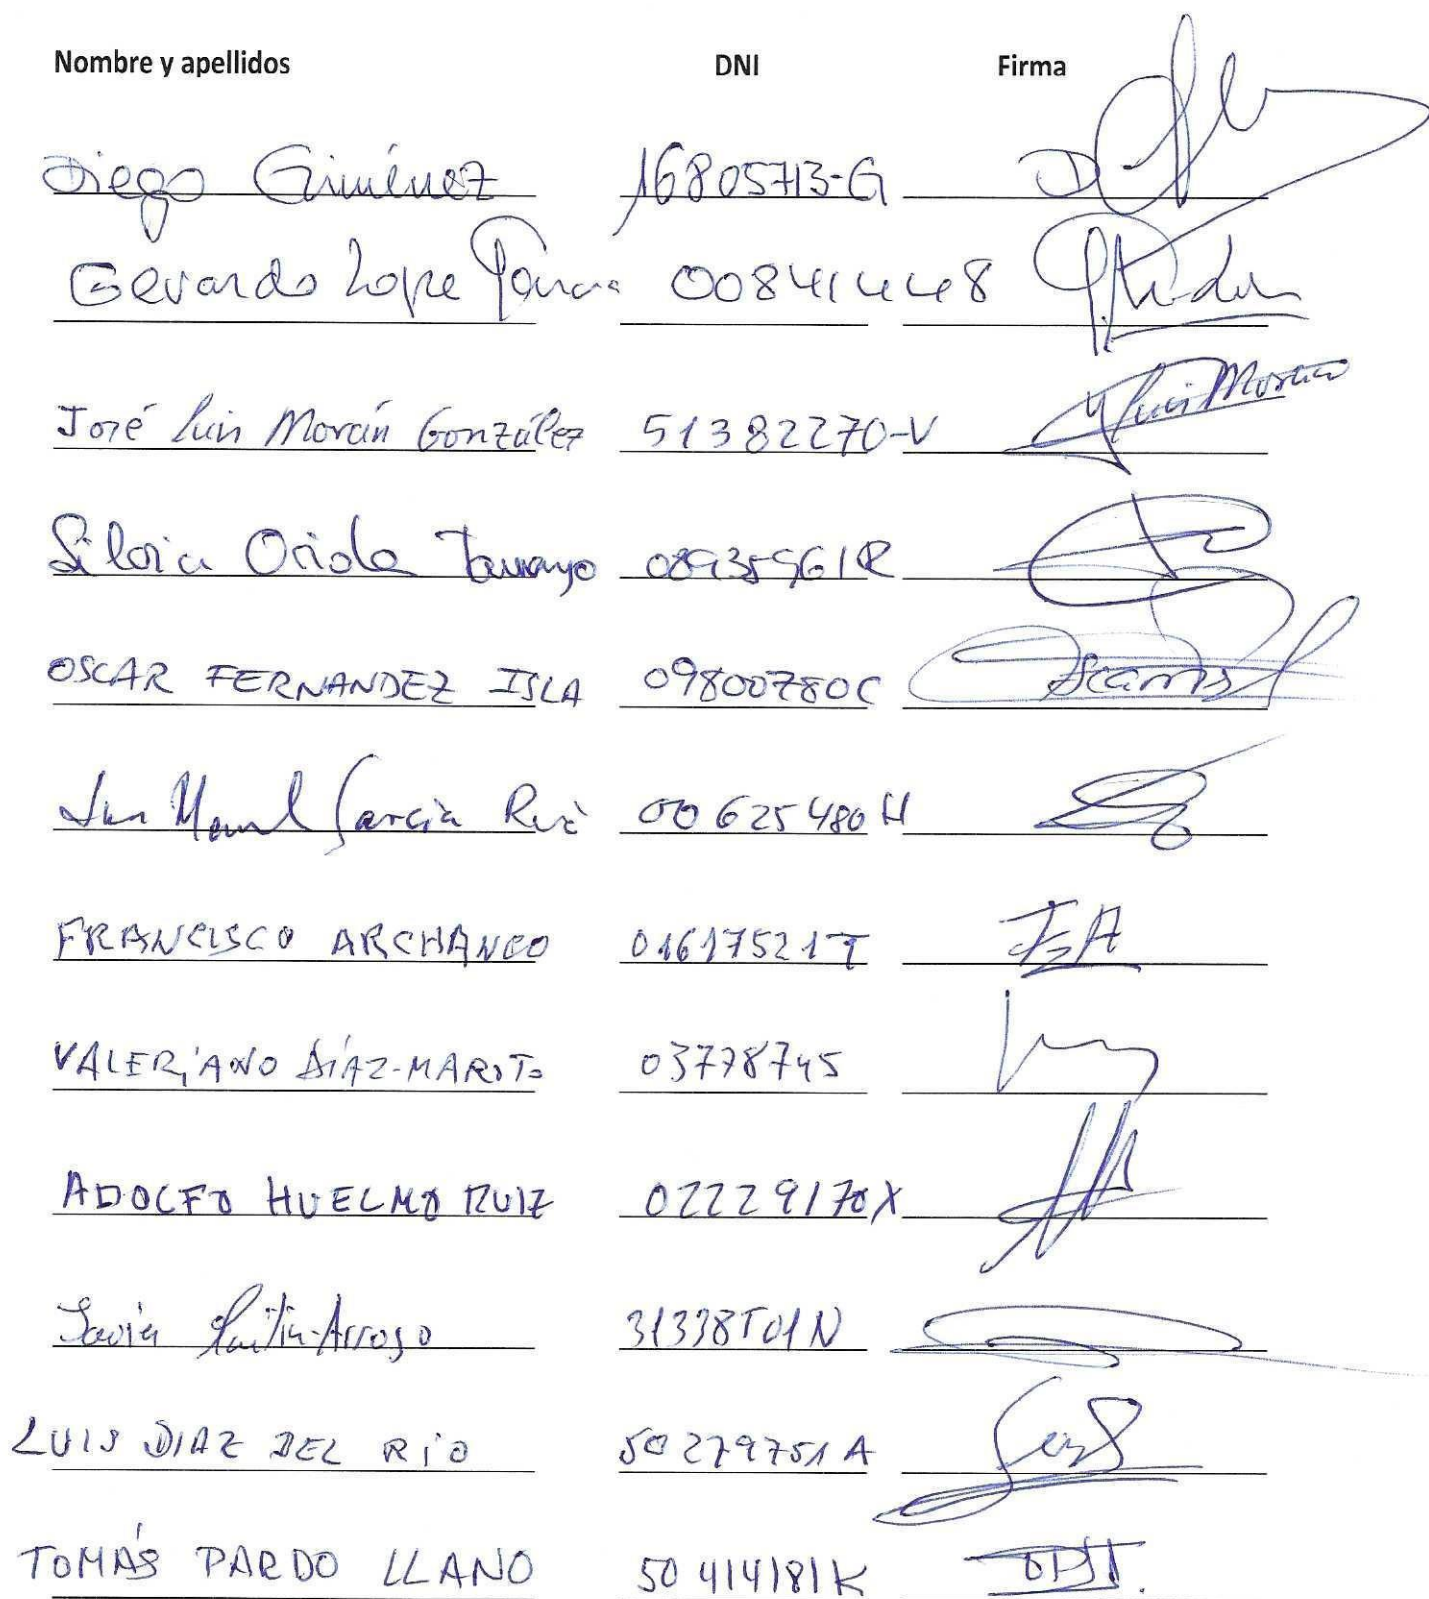 Nombre y apellidos DNI Firma
Diego Giménez 16805713-G
Gerardo Lope 008414448
José Luis Morán González 51382270-V Luis Morán
Silvia Oriola Tamayo
OSCAR FERNANDEZ ISLA 09800780C
García 00625480H
FRANCISCO 01617521T
VALERIANO DÍAZ-MAROTO 03778745
ADOLFO HUELMO RUIZ 02229170X
Javier Arroyo
LUIS DIAZ DEL RíO 50279751A
TOMÁS PARDO LLANO 50414181K